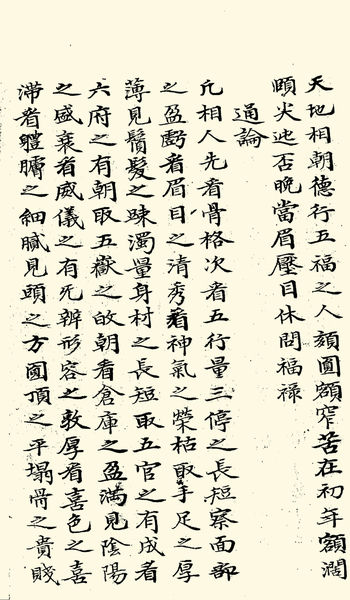 天地相朝德行五福之人頦圓額窄苦在初年額濶
頤尖迍否晚當眉壓目休問福祿
通論
凡相人先看骨格次看五行量三停之長短察面部
之盈虧看眉目之清秀看神氣之榮枯取手足之厚
薄見鬚髮之踈濁量身材之長短取五官之有成看
六府之有朝取五嶽之故朝看倉庫之盈滿見陰陽
之盛衰看威儀之有无辨形容之敦厚看喜色之喜
滯看軆膚之細膩見頭之方圓頂之平塌骨之貴賤